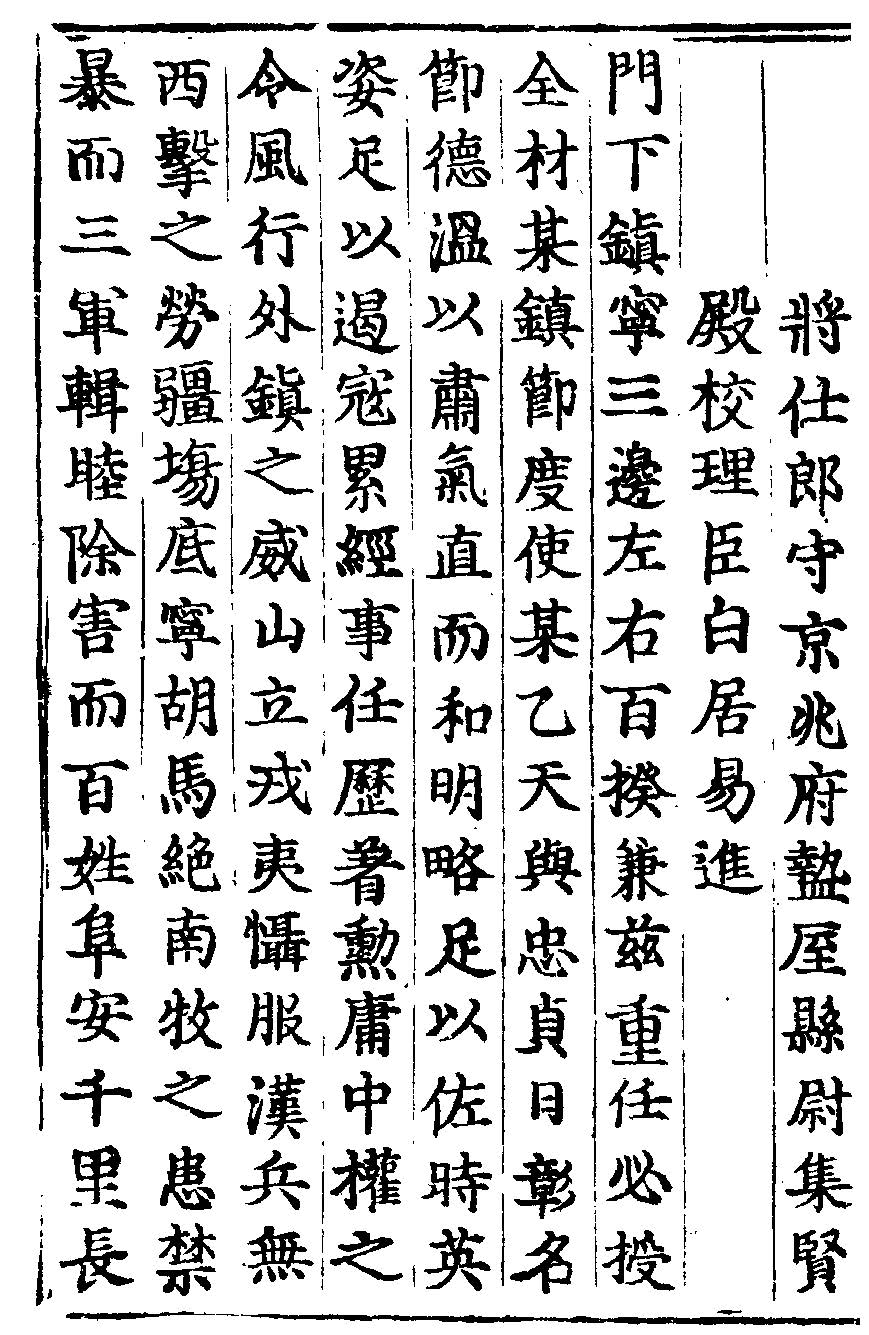 將仕郎守京兆府盩厔縣尉集賢
殿校理臣白居易進
門下鎮寧三邊左右百揆兼兹重任必授
全材某鎮節度使某乙天與忠貞日彰名
節德溫以肅氣直而和明略足以佐時英
姿足以遏寇累經事任歷著勳庸中權之
令風行外鎮之威山立戎夷懾服漢兵無
西擊之勞疆場底寧胡馬絶南牧之患禁
暴而三軍輯睦除害而百姓阜安千里長